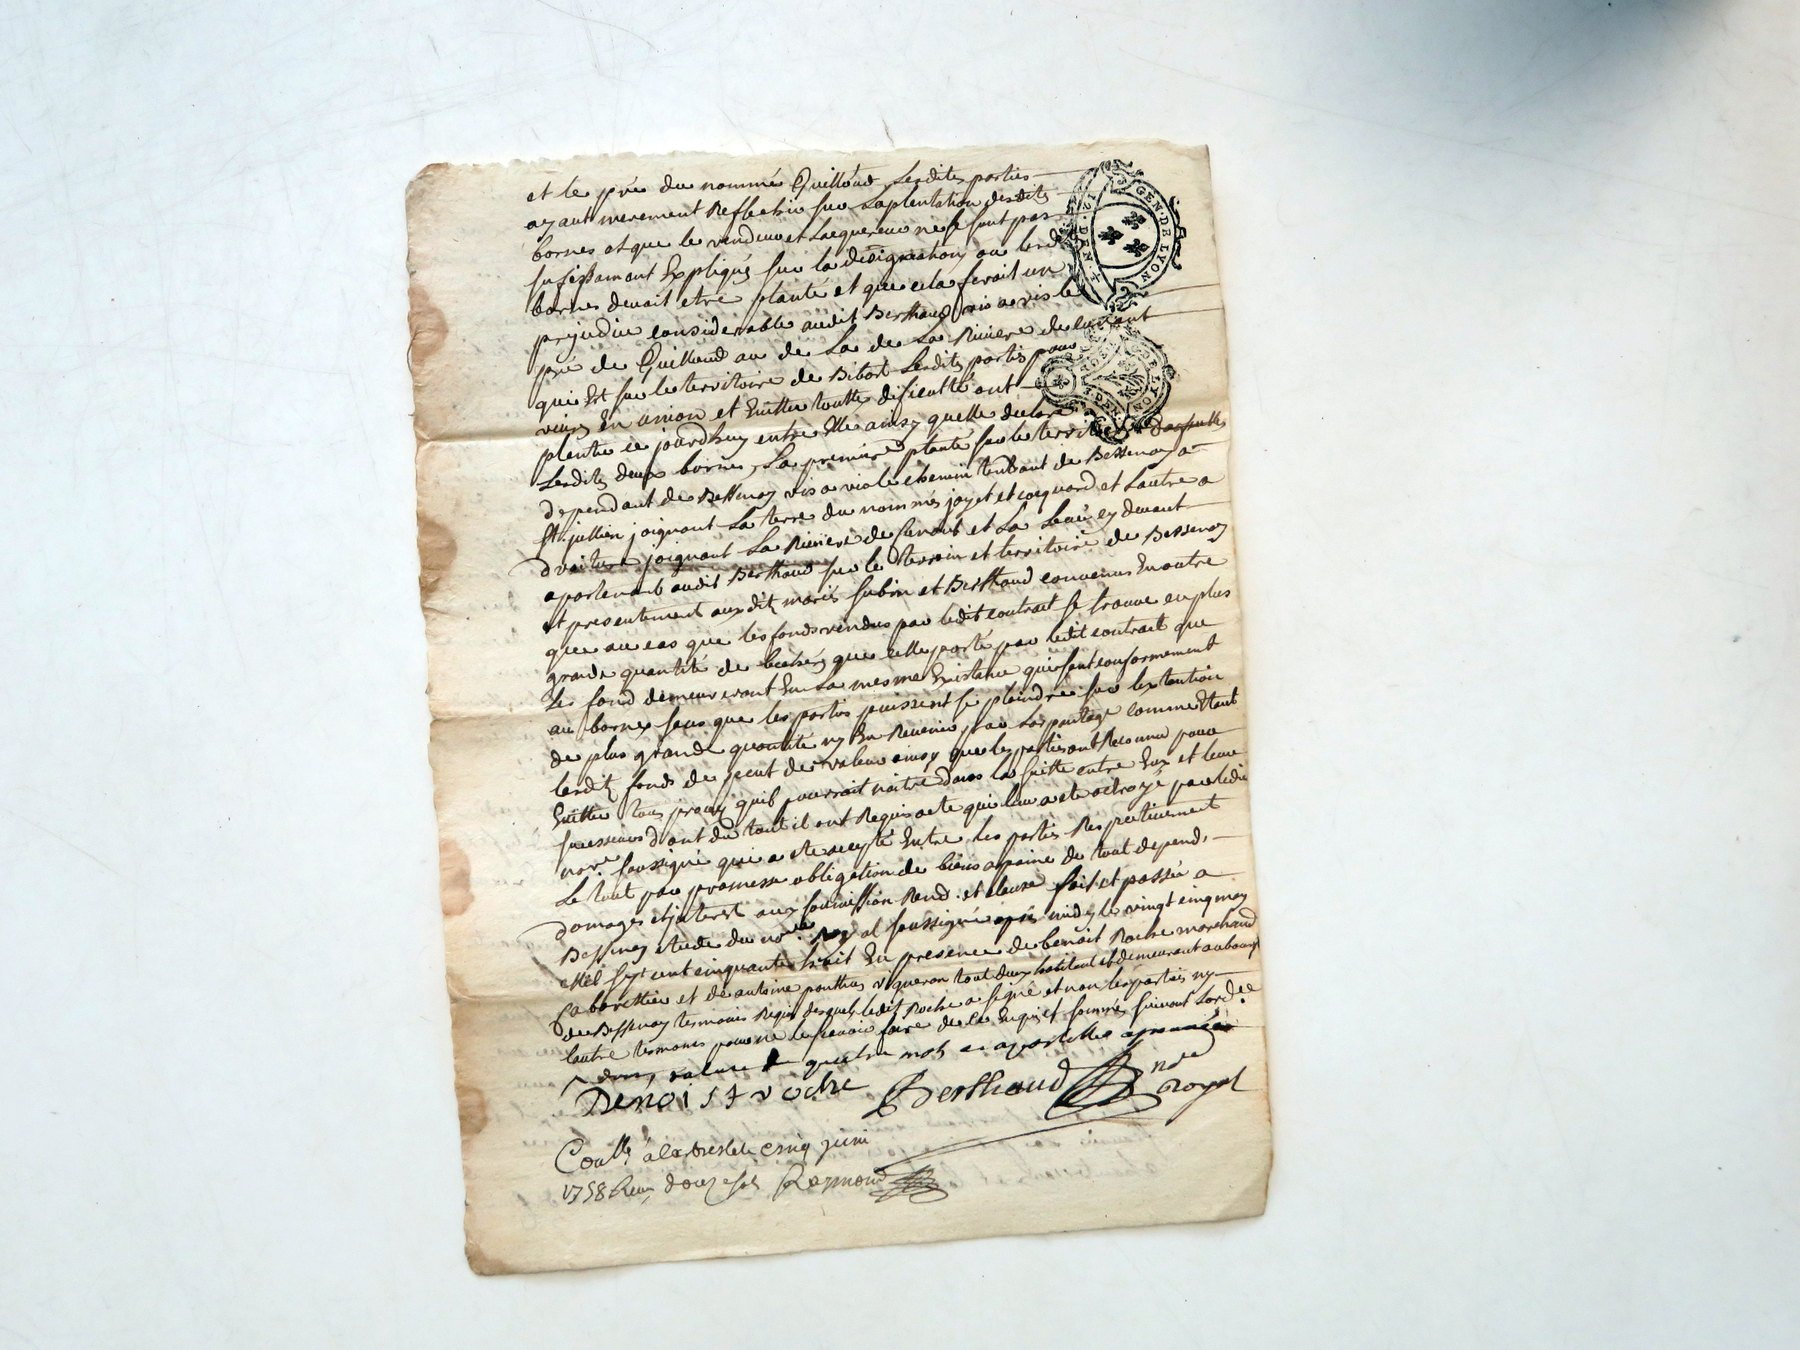 et le pré du nommé Quilloud, Lesdites parties
ayant murement Reflechir sur laplentation desdits
bornes et que le vendeur et Lacquereur ne se sont pas
sufissamant Expliqué sur la désignation ou lesd
bornes devait etre planté et que cela ferait un
prejudice considerable audit Berthaud vis a vis le
pré de Quilloud au de La de La Riviere de
qui Est sur le territoire de Bibost Lesdits partis pour
vivre En union et Eviter toutte dificulté ont
planté ce jourdhuy entre Elle ainsy quelle declare
Lesdits deux bornes, La premiere planté sur le territ
dependant de Bessenay vis a vis le chemin tendant de Bessenay a
St jullien joignant La terre du nommés joyet et coquard et Lautre a
droiture joignant La Riviere de et La devant
apartenant audit Berthaud sur le terrain et territoire de Bessenay
et presentement auxdits mariés subrin et Berthaud convenus En outre
que au cas que les fonds vendus par ledit contrait se trouve en plus
grande quantité de que celle porté par ledit contrait que
Les fond demeureront En La mesme Existance qui sont conformement
au bornes sans que les partis puissent se plaindre sur lextantion
de plus grande quantité ny En Revenir par Larpantage comme Etant
lesdits fonds de peut de valeur ainsy que les partis ont Reconnu pour
Eviter tous procez quil pourrait naitre Dans La suitte entre Eux et leur
successeurs dont du tout il ont Requis acte qui leur a ete octroyé par ledit
nore. soussigné qui a ete accepté Entre les partis Respectivement
Le tout par promesse obligation de biens apaine de tout depend.
domages et jnterest aux soumission Rend. et clause fait et passé a
Bessenay etude du nore. Royal soussigné apres midy le vingt cinq may
Mil sept cent cinquante huit En presence de benoit Roche marchand
Cabarettier et de antoine ponthus vigneron tout deux habitant et demeurant au bourg
de Bessenay temoins Requis desquels ledit Roche a signé et non les partis ny
lautre temoins pour ne le scavoir faire de ce Enquis et sommés suivant Lordce.
quatre mots
Benoist roche Berthaud nre Royal
Coullé à Larbresle le cinq juin
1758 Recu douze sols Raymond